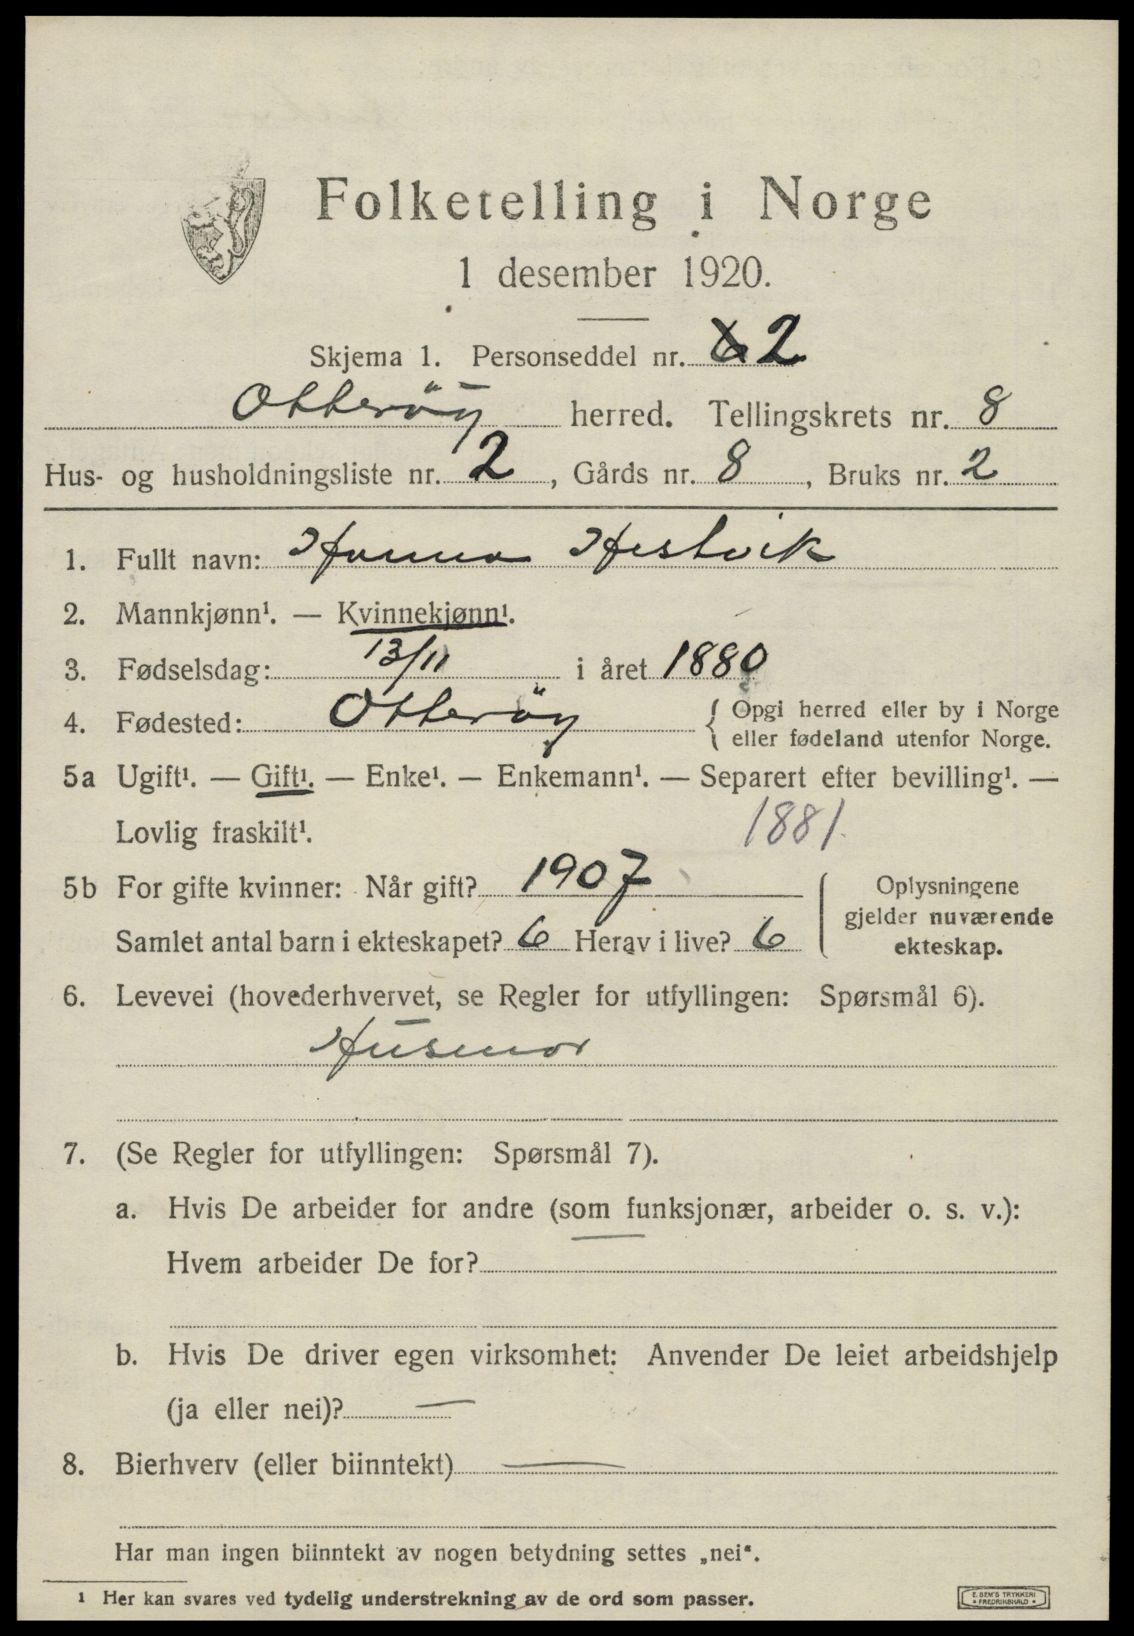 Folketelling i Norge
1 desember 1920.
Skjema 1. Personseddel nr. 2
Otterøy herred. Tellingskrets nr. 8
Hus- og husholdningsliste nr. 2, Gårds nr. 8, Bruks nr. 2
1. Fullt navn: Hanna Hestvik
2. Mannkjønn¹. — Kvinnekjønn¹.
3. Fødselsdag: 13/11 i året 1880
4. Fødested: Otterøy { Opgi herred eller by i Norge
eller fødeland utenfor Norge.
5a Ugift¹. — Gift¹. — Enke¹. — Enkemann¹. — Separert efter bevilling¹. —
Lovlig fraskilt¹. 1881.
5b For gifte kvinner: Når gift? 1907
Samlet antal barn i ekteskapet? 6 Herav i live? 6
Oplysningene
gjelder nuværende
ekteskap.
6. Levevei (hovederhvervet, se Regler for utfyllingen: Spørsmål 6).
Husmor
7. (Se Regler for utfyllingen: Spørsmål 7).
a. Hvis De arbeider for andre (som funksjonær, arbeider o. s. v.):
Hvem arbeider De for?
b. Hvis De driver egen virksomhet: Anvender De leiet arbeidshjelp
(ja eller nei)? —
8. Bierhverv (eller biinntekt) —
Har man ingen biinntekt av nogen betydning settes „nei“.
1 Her kan svares ved tydelig understrekning av de ord som passer.
E. SEM'S TRYKKERI
• FREDRIKSHALD •